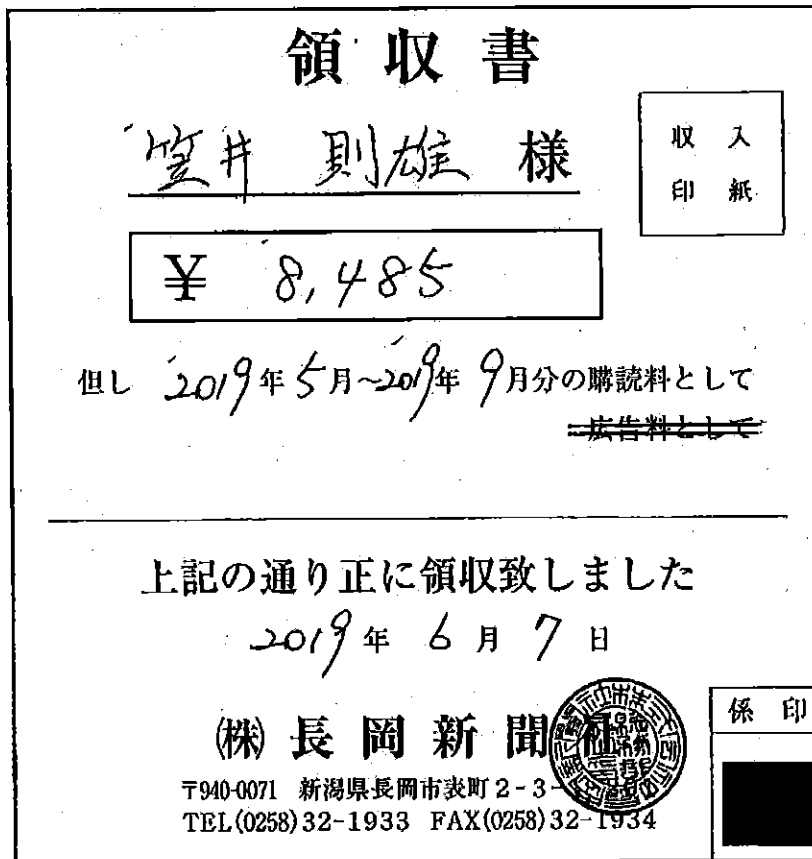 領収書
笠井 則雄 様
収入
印紙
¥ 8,485
但し 2019年5月~2019年9月分の購読料として
広告料として
上記の通り正に領収致しました
2019年6月7日
係印
(株)長岡新聞社
〒940-0071 新潟県長岡市表町2-3-
TEL(0258)32-1933 FAX(0258)32-1934